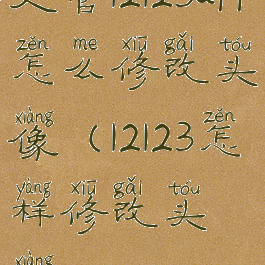 zěn me xiū gǎi tóu
怎么修改头
xiàng zěn
像（12123怎
yàng xiū gǎi tóu
样修改头
xiàng